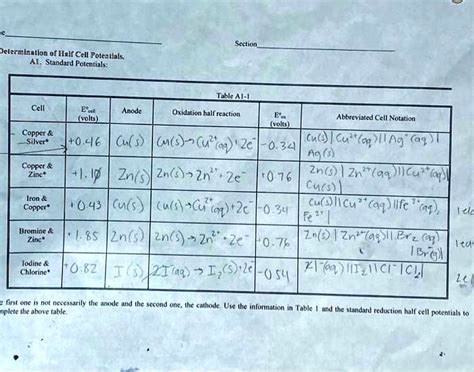 Section
Determination of Half Cell Potentials.
A1. Standard Potentials:
Table A1-1
Cell E°cell (volts) Anode Oxidation half reaction E°ox (volts) Abbreviated Cell Notation
Copper & Silver* +0.46 Cu(s) Cu(s)→Cu²⁺(aq)+2e⁻ -0.34 Cu(s)|Cu²⁺(aq)||Ag⁺(aq)|Ag(s)
Copper & Zinc* +1.10 Zn(s) Zn(s)→Zn²⁺+2e⁻ +0.76 Zn(s)|Zn²⁺(aq)||Cu²⁺(aq)|Cu(s)|
Iron & Copper* +0.43 Cu(s) Cu(s)→Cu²⁺(aq)+2e⁻ -0.34 Cu(s)||Cu²⁺(aq)||Fe³⁺(aq),Fe²⁺|
Bromine & Zinc* +1.85 Zn(s) Zn(s)→Zn²⁺+2e⁻ +0.76 Zn(s)|Zn²⁺(aq)||Br₂(aq)
Iodine & Chlorine* +0.82 2I⁻(aq)→I₂(s)+2e⁻ -0.54
first one is not necessarily the anode and the second one, the cathode. Use the information in Table 1 and the standard reduction half cell potentials to
the above table.